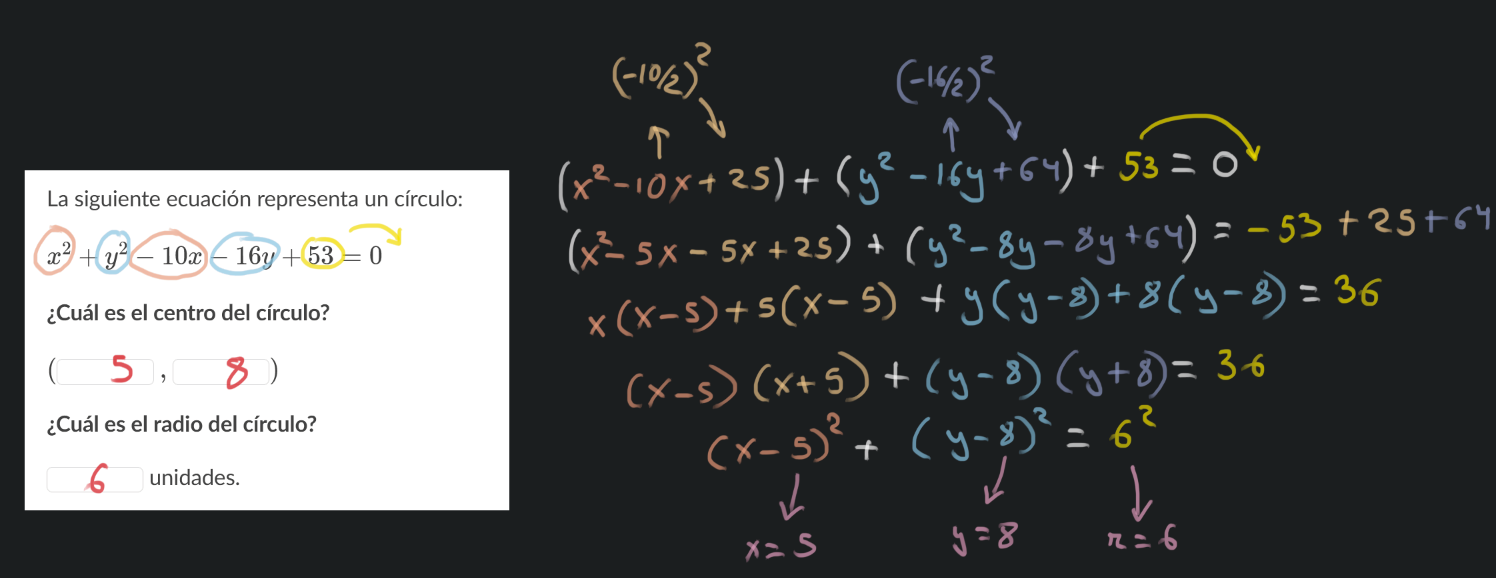 La siguiente ecuación representa un círculo:
x² + y² − 10x − 16y + 53 = 0
¿Cuál es el centro del círculo?
( 5 , 8 )
¿Cuál es el radio del círculo?
6 unidades.
(-10/2)² (-16/2)²
(x²-10x+25)+(y²-16y+64)+53=0
(x²-5x-5x+25)+(y²-8y-8y+64)=-53+25+64
x(x-5)+5(x-5)+y(y-8)+8(y-8)=36
(x-5)(x+5)+(y-8)(y+8)=36
(x-5)²+(y-8)²=6²
x=5 y=8 r=6